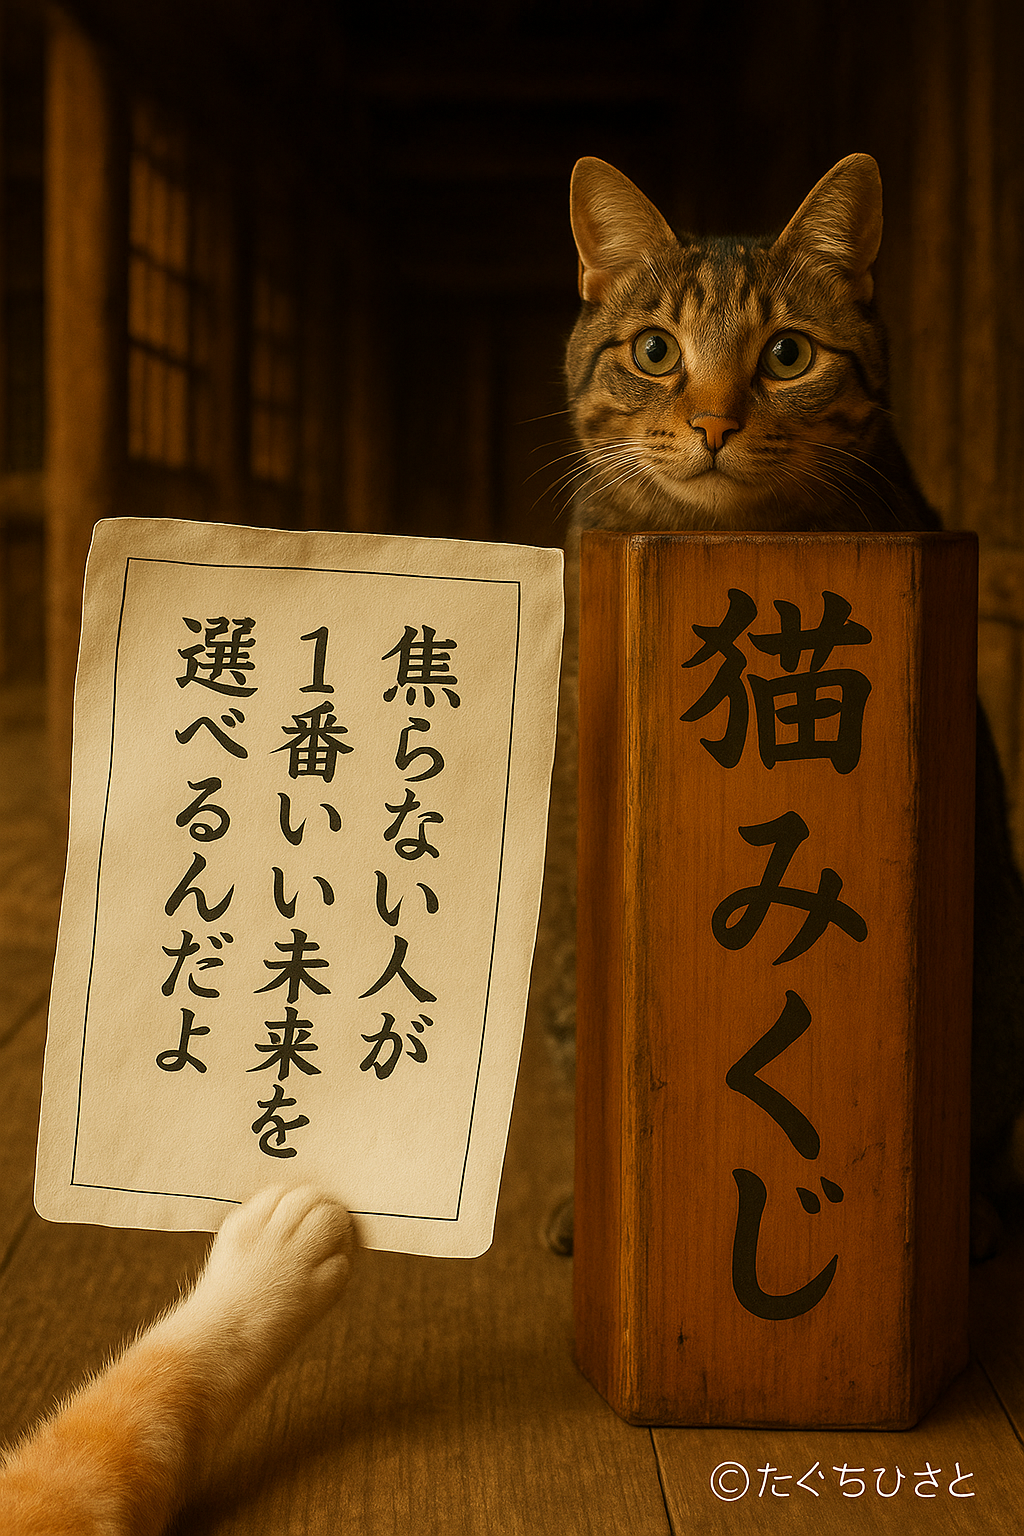 焦らない人が
1番いい未来を
選べるんだよ
猫みくじ
©たぐちひさと